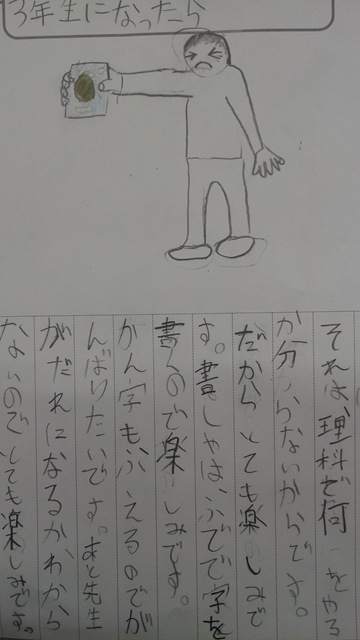 3年生になったら
それは、理科で何をやる
か分からないからです。
だからとても楽しみで
す。書しゃはふでで字を
書くので楽しみです。
かん字もふえるのでが
んばりたいです。あと先生
がだれになるかわから
ないのでとても楽しみです。